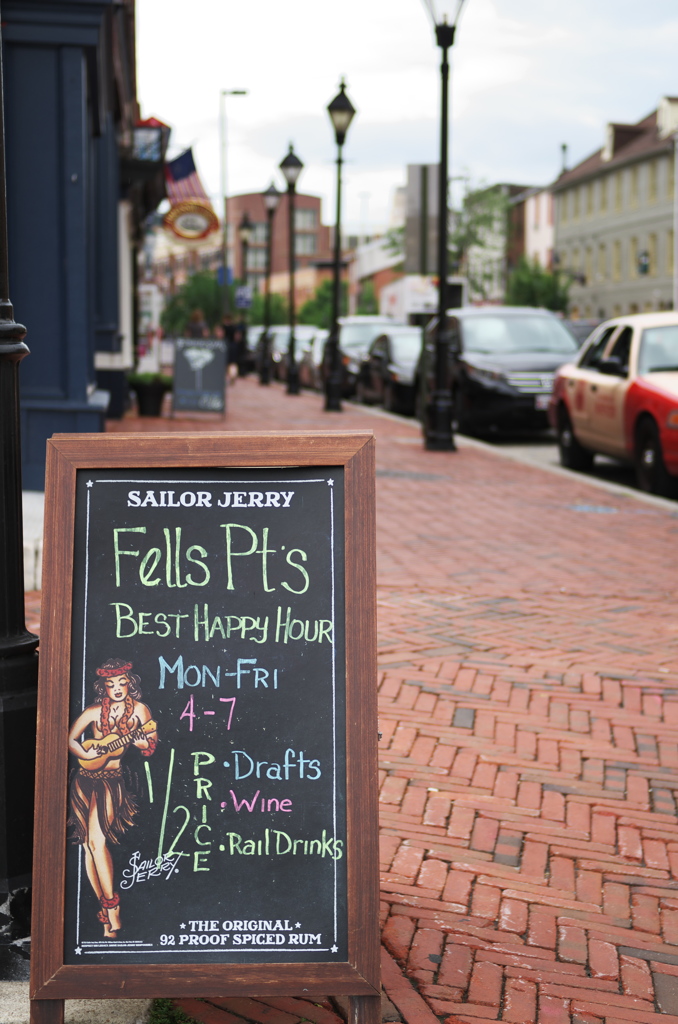 SAILOR JERRY
Fells Pt's
BEST HAPPY HOUR
MON-FRI
4-7
1/2 PRICE
·Drafts
·Wine
·Rail Drinks
SAILOR JERRY.
THE ORIGINAL
92 PROOF SPICED RUM